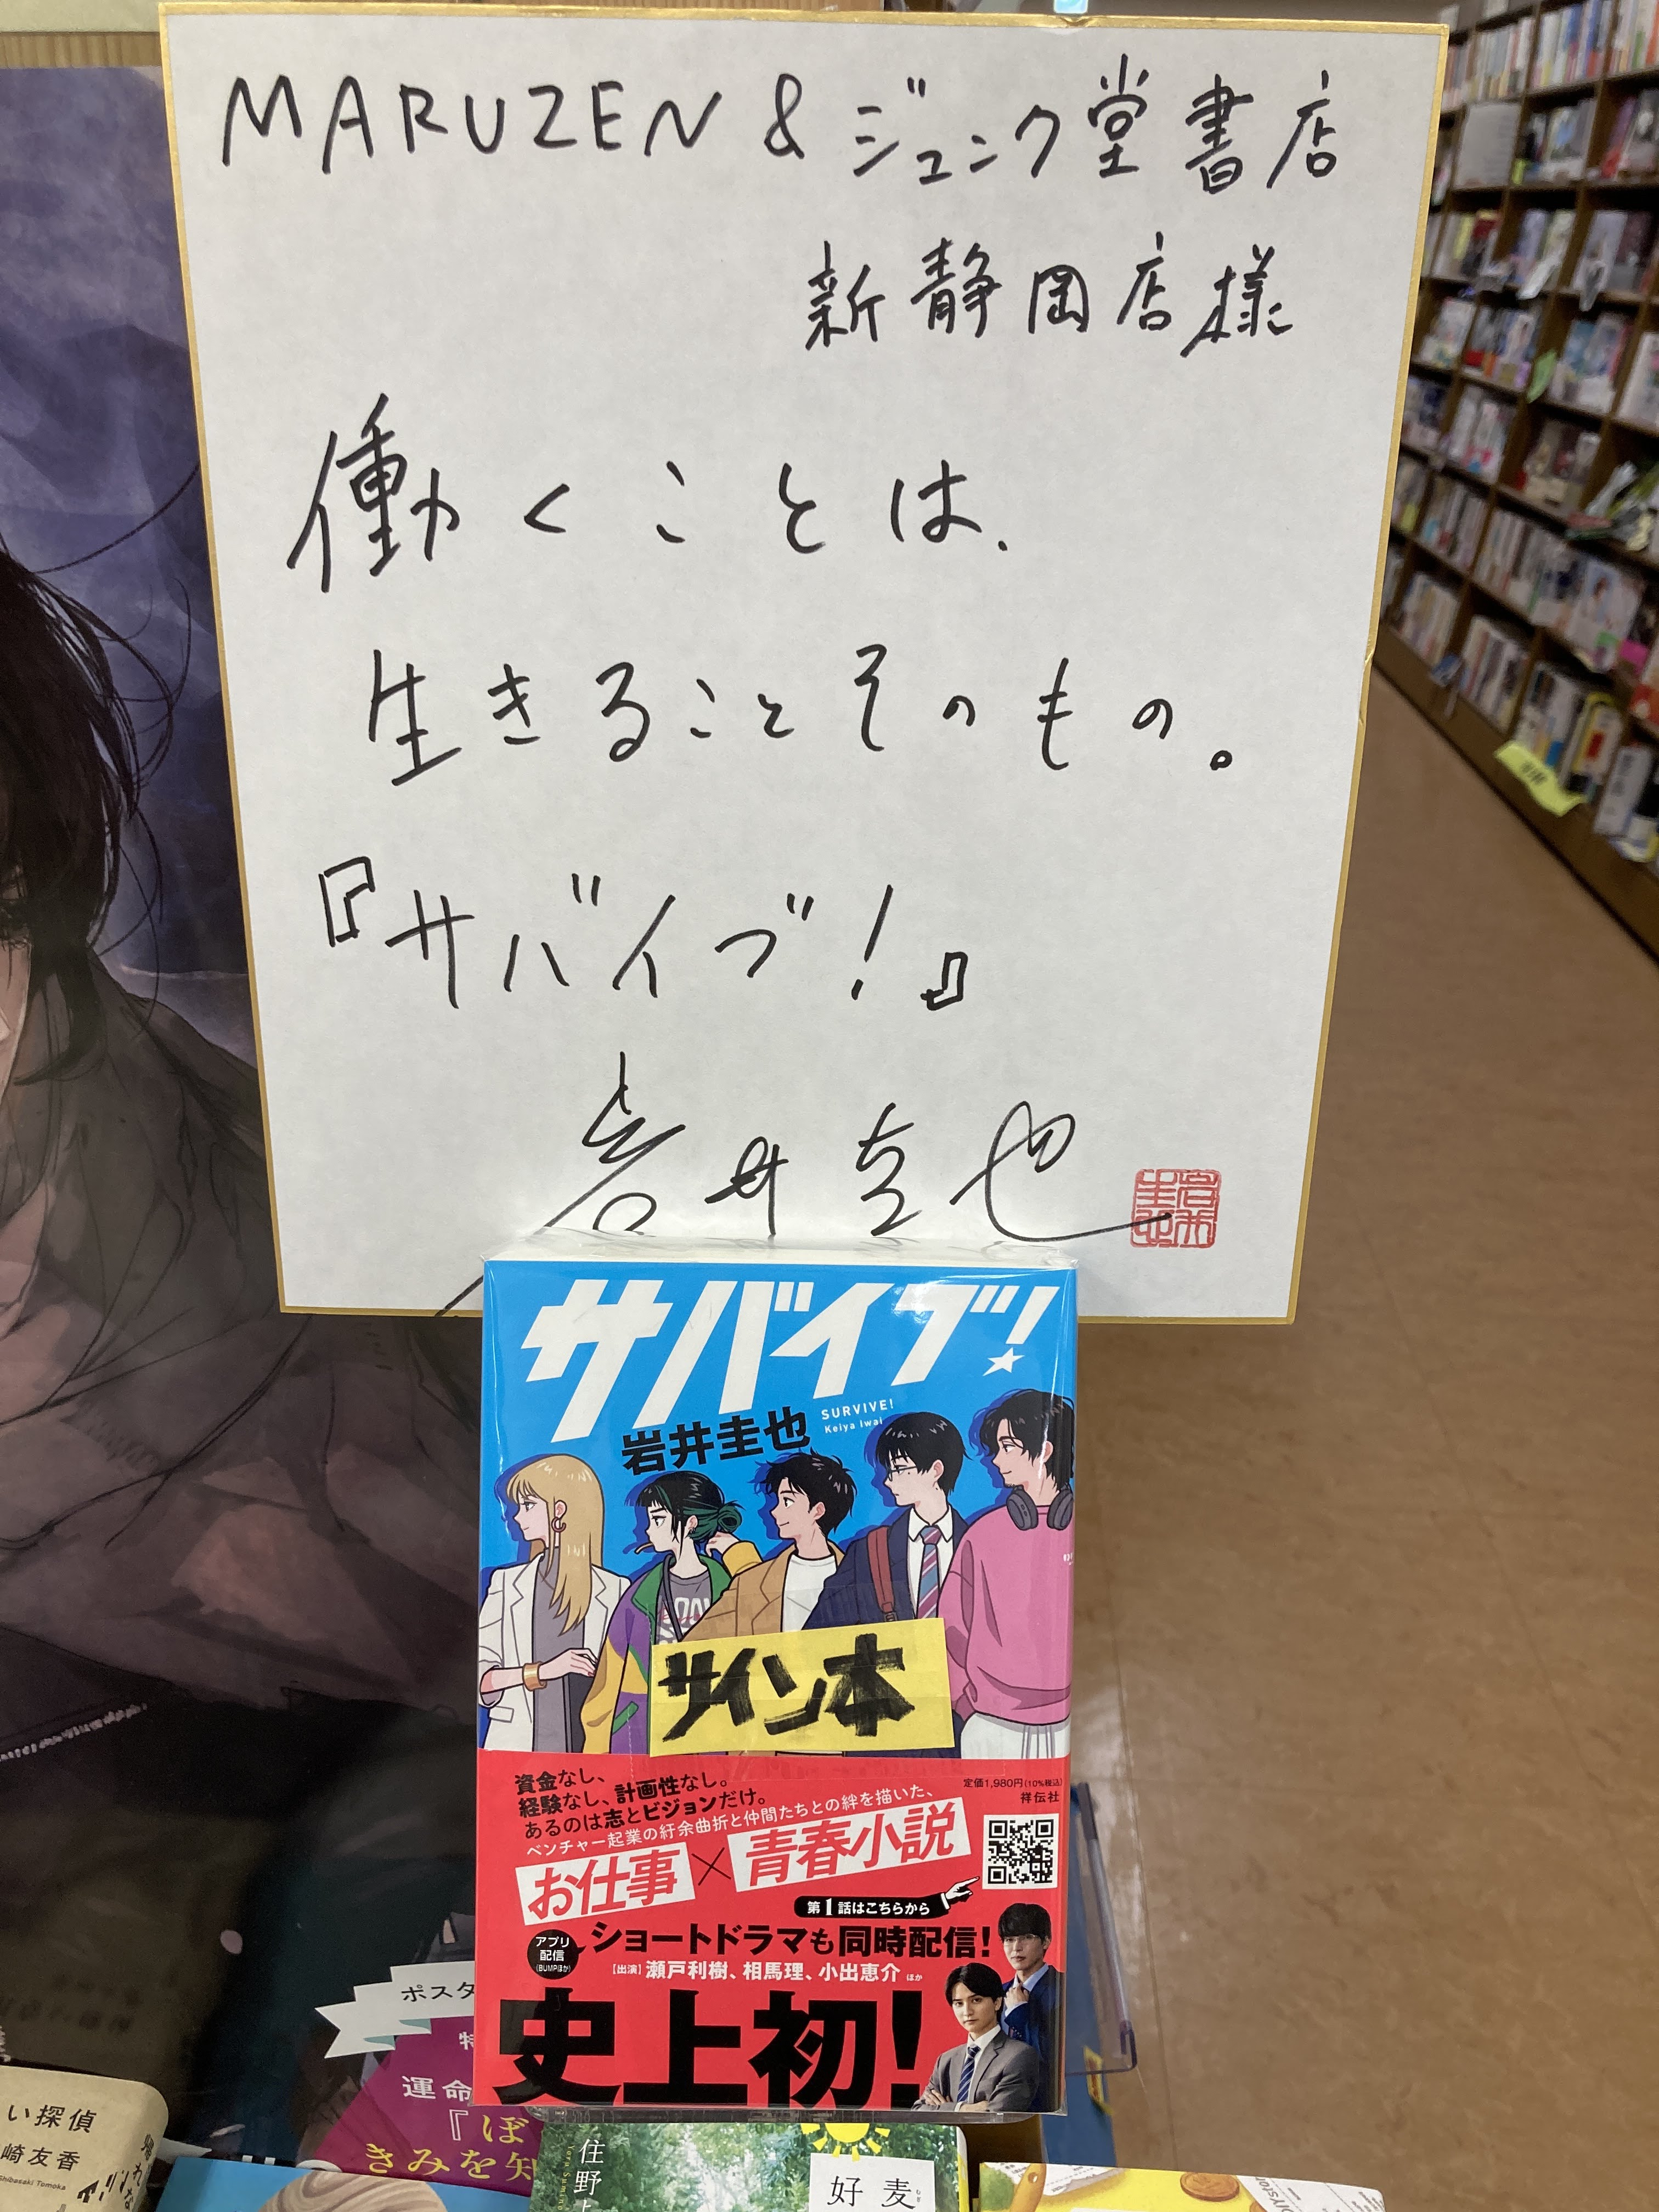 MARUZEN & ジュンク堂書店
新静岡店様
働くことは、
生きることそのもの。
『サバイブ!』
岩井圭也
岩井圭也
サバイブ!
SURVIVE!
Keiya Iwai
岩井圭也
サイン本
資金なし、
経験なし、計画性なし。
あるのは志とビジョンだけ。
ベンチャー起業の紆余曲折と仲間たちとの絆を描いた、
お仕事×青春小説
定価1,980円(10%税込)
祥伝社
第1話はこちらから
アプリ
配信
(BUMPほか)
ショートドラマも同時配信!
[出演]瀬戸利樹、相馬理、小出恵介 ほか
史上初!
ポスタ
特
運命
『ぼ
きみを知
い探偵
崎友香
Shibasaki Tomoka
住野よ
Yoru Sumino
麦
好